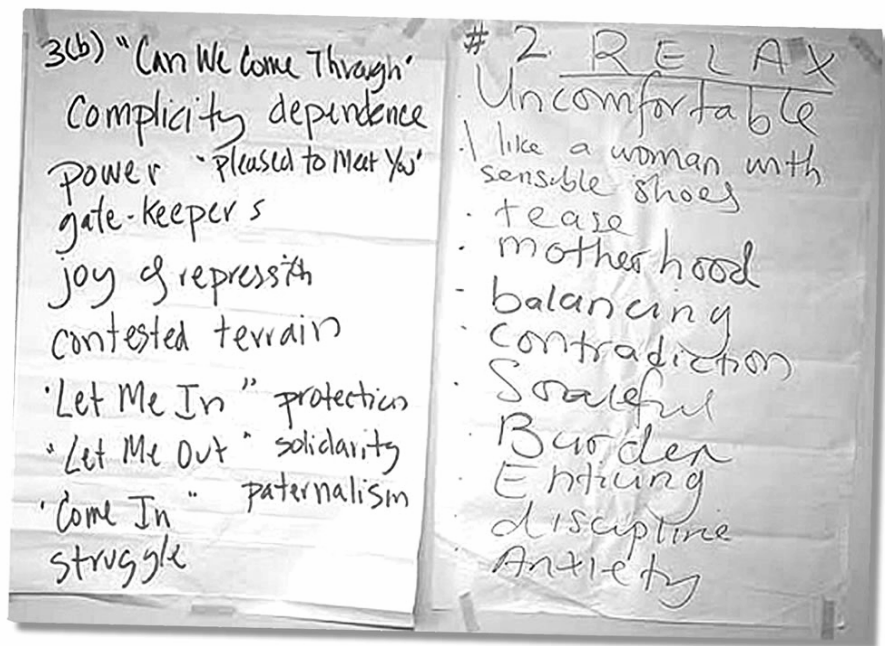 3(b) "Can We Come Through"
Complicity dependence
power "Pleased to Meet You"
gate-keepers
joy of repression
contested terrain
"Let Me In" protection
"Let Me Out" solidarity
paternalism
"Come In"
struggle
# 2 RELAX
· Uncomfortable
· I like a woman with
sensible shoes
· tease
· motherhood
- balancing
· Contradiction
· Graceful
· Burden
· Enticing
· discipline
· Anxiety